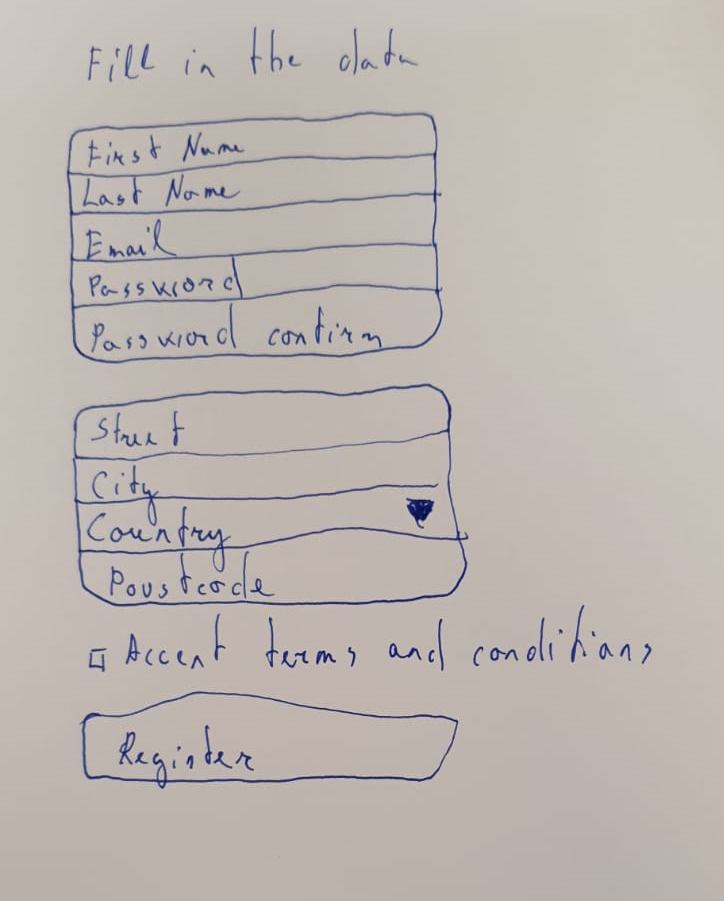 Fill in the data
First Name
Last Name
Email
Password
Password confirm
Street
City
Country
Poustcode
Accent terms and conditions
Register